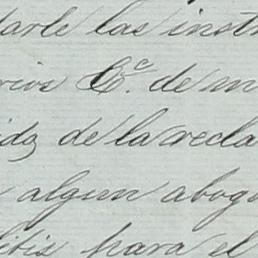 darle las inst
rios &c. de m
idz de la recla
algun abog
litis para el